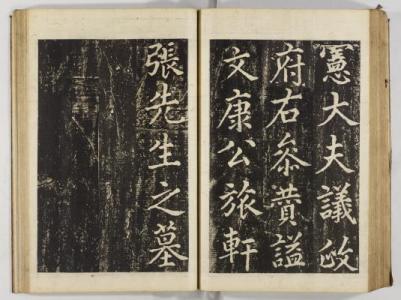 憲大夫議政
府右參贊謚
文康公旅軒
張先生之墓